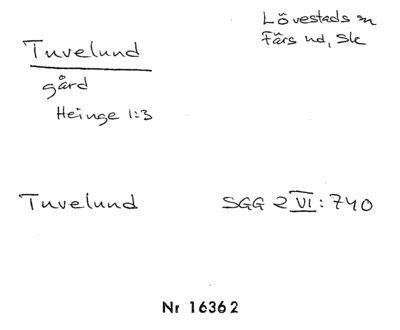 Tuvelund
Lövestads sn
Färs hd, Sk
gård
Heinge 1:3
Tuvelund SGG 2 VI: 740
Nr 16362